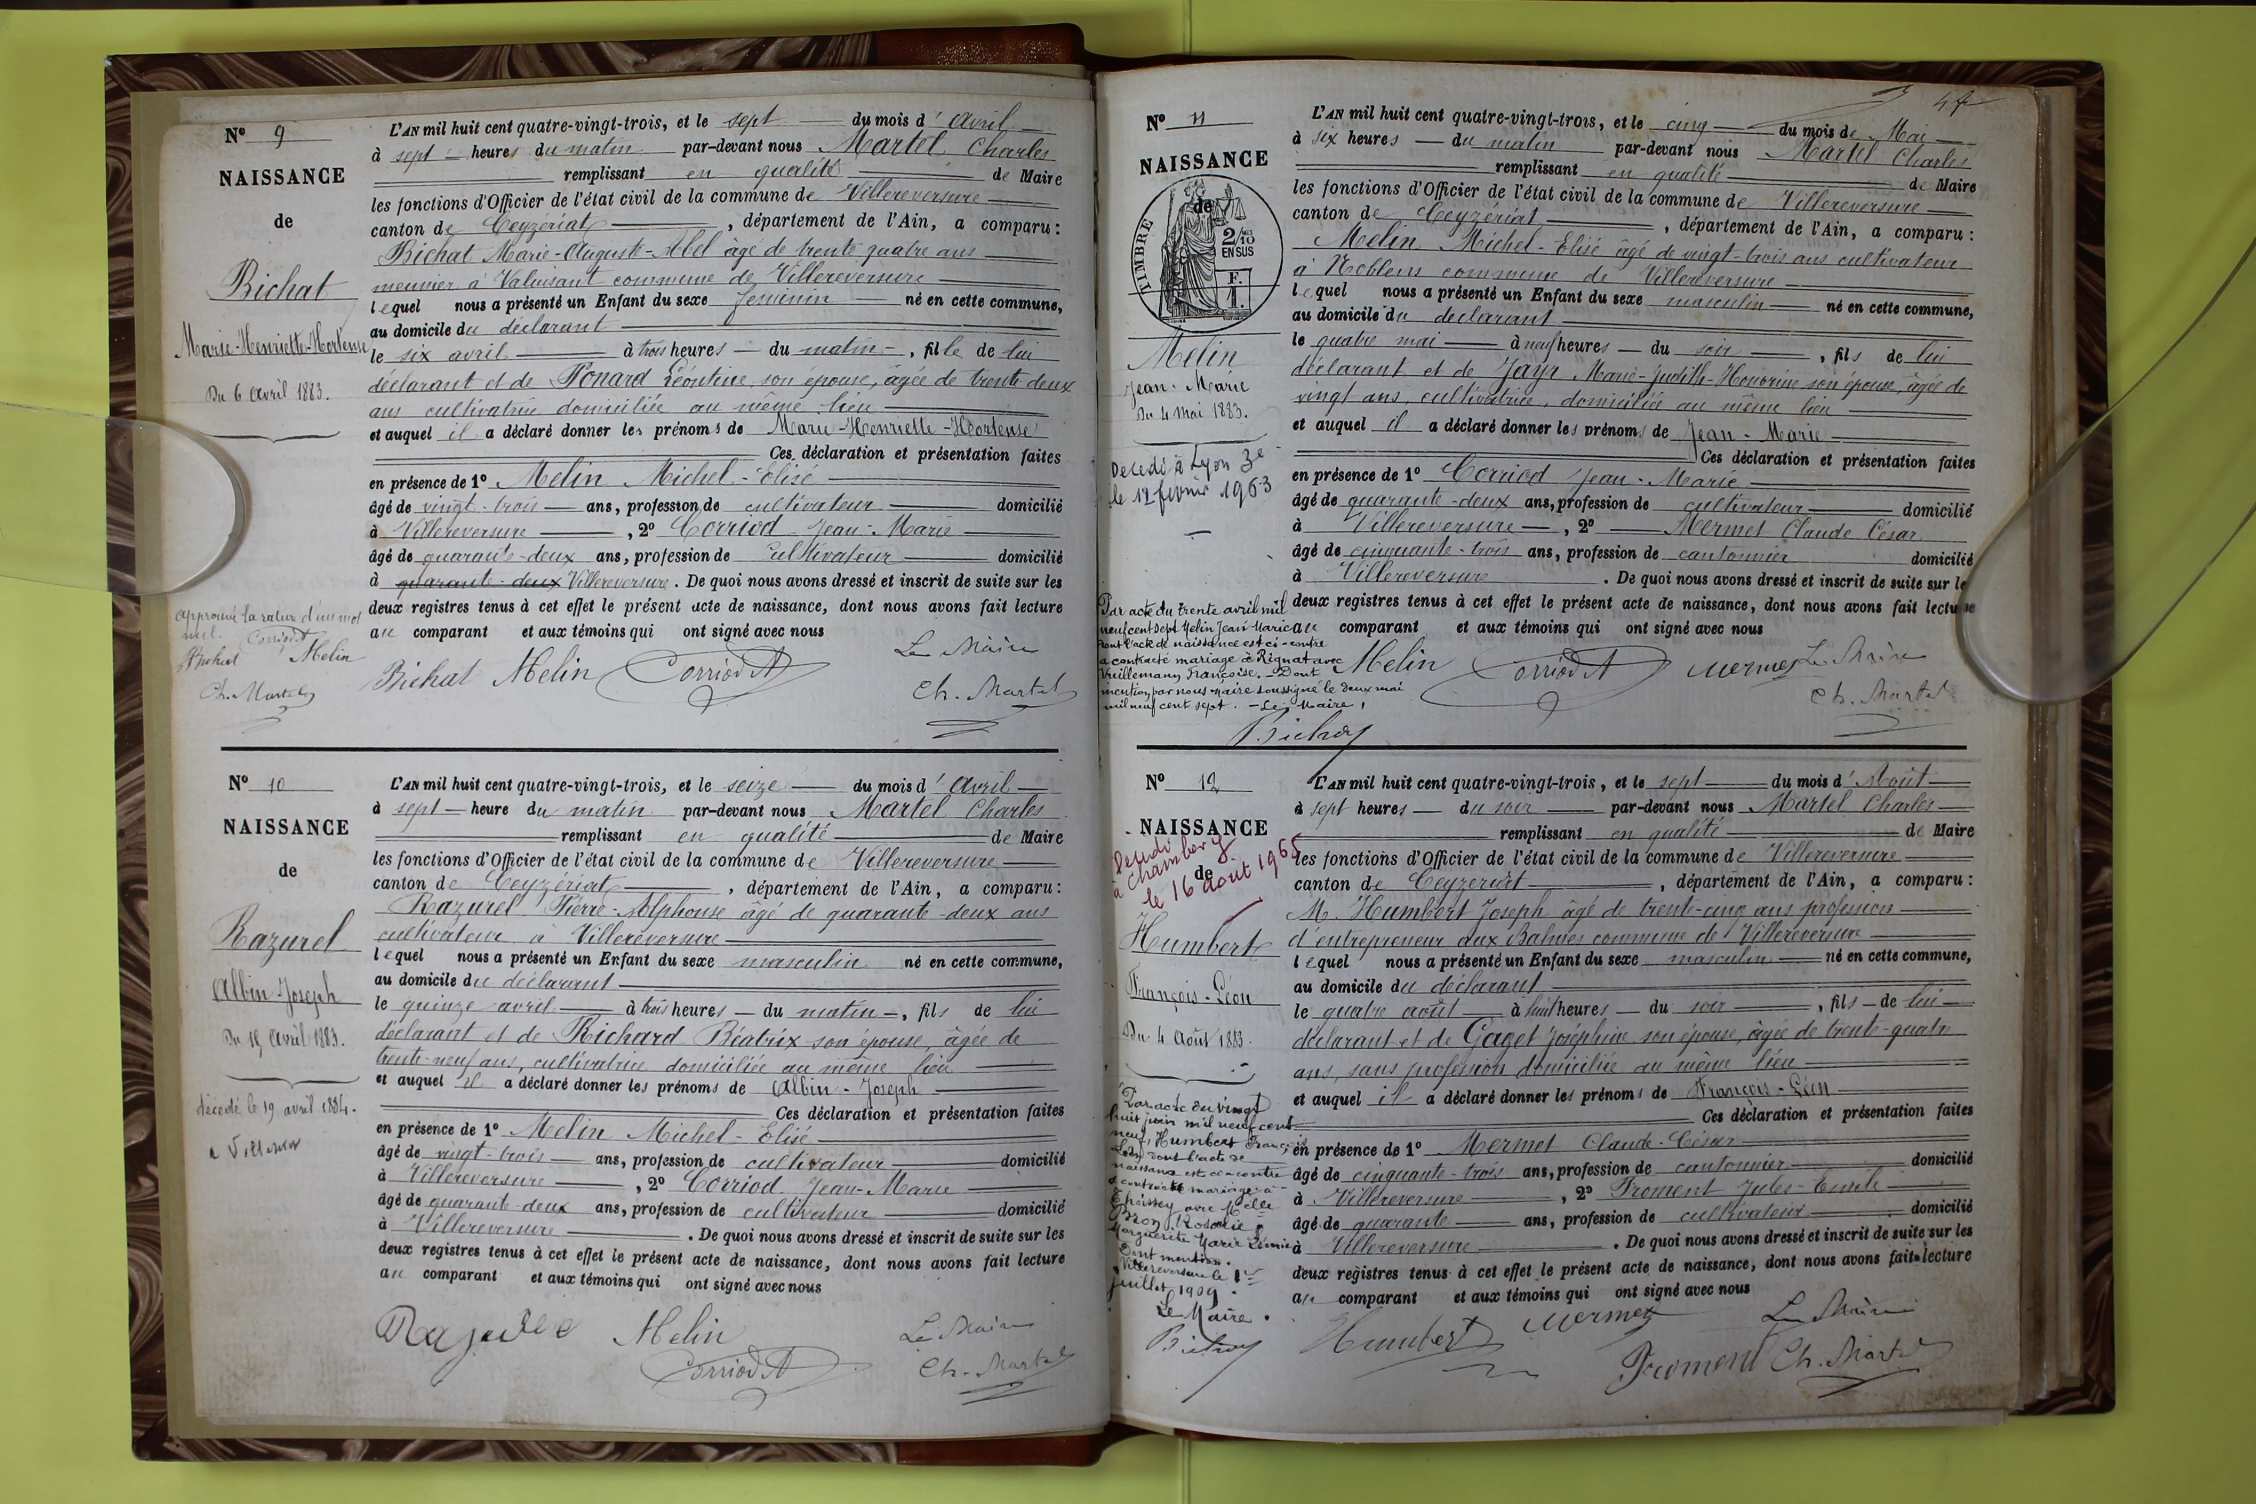 N° 9
NAISSANCE
de
Bichat
Marie-Henriette-Hortense
Du 6 avril 1883.
approuvé la rature d'un mot
nul. Corriod
Bichat Melin
Ch. Martel
L'AN mil huit cent quatre-vingt-trois, et le sept du mois d'avril
à sept heures du matin par-devant nous Martel Charles
remplissant en qualité de Maire
les fonctions d'Officier de l'état civil de la commune de Villereversure
canton de Ceyzériat, département de l'Ain, a comparu :
Bichat Marie-Auguste-Abel âgé de trente quatre ans
meunier à Valuisant commune de Villereversure
lequel nous a présenté un Enfant du sexe féminin né en cette commune,
au domicile du déclarant
le six avril à trois heures du matin, fille de lui
déclarant et de Ponard Léontine, son épouse, âgée de trente deux
ans cultivatrice domiciliée au même lieu
et auquel il a déclaré donner les prénoms de Marie-Henriette-Hortense
Ces déclaration et présentation faites
en présence de 1° Melin Michel-Elisé
âgé de vingt-trois ans, profession de cultivateur domicilié
à Villereversure, 2° Corriod Jean-Marie
âgé de quarante-deux ans, profession de cultivateur domicilié
à quarante-deux Villereversure. De quoi nous avons dressé et inscrit de suite sur les
deux registres tenus à cet effet le présent acte de naissance, dont nous avons fait lecture
au comparant et aux témoins qui ont signé avec nous
Le Maire
Bichat Melin Corriod Ch. Martel
N° 10
NAISSANCE
de
Razurel
Albin Joseph
Du 15 avril 1883.
décédé le 19 avril 1884.
L'AN mil huit cent quatre-vingt-trois, et le seize du mois d'avril
à sept heure du matin par-devant nous Martel Charles
remplissant en qualité de Maire
les fonctions d'Officier de l'état civil de la commune de Villereversure
canton de Ceyzériat, département de l'Ain, a comparu :
Razurel Pierre-Alphonse âgé de quarante-deux ans
cultivateur à Villereversure
lequel nous a présenté un Enfant du sexe masculin né en cette commune,
au domicile du déclarant
le quinze avril à trois heures du matin, fils de lui
déclarant et de Richard Béatrix son épouse, âgée de
trente-neuf ans, cultivatrice domiciliée au même lieu
et auquel il a déclaré donner les prénoms de Albin-Joseph
Ces déclaration et présentation faites
en présence de 1° Melin Michel-Elisé
âgé de vingt-trois ans, profession de cultivateur domicilié
à Villereversure, 2° Corriod Jean-Marie
âgé de quarante-deux ans, profession de cultivateur domicilié
à Villereversure. De quoi nous avons dressé et inscrit de suite sur les
deux registres tenus à cet effet le présent acte de naissance, dont nous avons fait lecture
au comparant et aux témoins qui ont signé avec nous
Razurel Melin Le Maire
Corriod Ch. Martel
N° 11
NAISSANCE
de
TIMBRE
2/10 EN SUS
F. 1.
Melin
Jean-Marie
Du 4 Mai 1883.
Decedé à Lyon 3e
le 12 février 1963
Par acte du trente avril mil
neuf cent sept Melin Jean Marie
dont l'acte de naissance est ci-contre
a contracté mariage à Rignat avec
Vuillemany Françoise. Dont
mention par nous maire soussigné le deux mai
mil neuf cent sept. - Le Maire,
L'AN mil huit cent quatre-vingt-trois, et le cinq du mois de Mai
à six heures du matin par-devant nous Martel Charles
remplissant en qualité de Maire
les fonctions d'Officier de l'état civil de la commune de Villereversure
canton de Ceyzériat, département de l'Ain, a comparu :
Melin Michel-Elisé âgé de vingt-trois ans cultivateur
à Noblens commune de Villereversure
lequel nous a présenté un Enfant du sexe masculin né en cette commune,
au domicile du déclarant
le quatre mai à neuf heures du soir, fils de lui
déclarant et de Jayr Marie-Judith-Honorine son épouse, âgée de
vingt ans, cultivatrice, domiciliée au même lieu
et auquel il a déclaré donner les prénoms de Jean-Marie
Ces déclaration et présentation faites
en présence de 1° Corriod Jean-Marie
âgé de quarante-deux ans, profession de cultivateur domicilié
à Villereversure, 2° Mermet Claude César
âgé de cinquante-trois ans, profession de cantonnier domicilié
à Villereversure. De quoi nous avons dressé et inscrit de suite sur le
deux registres tenus à cet effet le présent acte de naissance, dont nous avons fait lecture
au comparant et aux témoins qui ont signé avec nous
Melin Corriod Mermet Le Maire
Ch. Martel
N° 12
NAISSANCE
de
Decedé
à Chambery
le 16 août 1965
Humbert
François-Léon
Du 4 Août 1883.
Par acte du vingt
huit juin mil neuf cent
neuf, Humbert François
Léon dont l'acte de
naissance est ci-contre
a contracté mariage à
Thoissey avec Melle
Bron Rosalie
Marguerite Marie
Dont mention.
Villereversure le 1er
juillet 1909.
Le Maire.
L'AN mil huit cent quatre-vingt-trois, et le sept du mois d'Août
à sept heures du soir par-devant nous Martel Charles
remplissant en qualité de Maire
les fonctions d'Officier de l'état civil de la commune de Villereversure
canton de Ceyzeriat, département de l'Ain, a comparu :
M. Humbert Joseph âgé de trente-cinq ans profession
d'entrepreneur aux Balmes commune de Villereversure
lequel nous a présenté un Enfant du sexe masculin né en cette commune,
au domicile du déclarant
le quatre août à huit heures du soir, fils de lui
déclarant et de Gaget Joséphine son épouse, âgée de trente-quatre
ans, sans profession domiciliée au même lieu
et auquel il a déclaré donner les prénoms de François-Léon
Ces déclaration et présentation faites
en présence de 1° Mermet Claude-César
âgé de cinquante-trois ans, profession de cantonnier domicilié
à Villereversure, 2° Froment Jules-Emile
âgé de quarante ans, profession de cultivateur domicilié
à Villereversure. De quoi nous avons dressé et inscrit de suite sur les
deux registres tenus à cet effet le présent acte de naissance, dont nous avons fait lecture
au comparant et aux témoins qui ont signé avec nous
Humbert Mermet Le Maire
Froment Ch. Martel